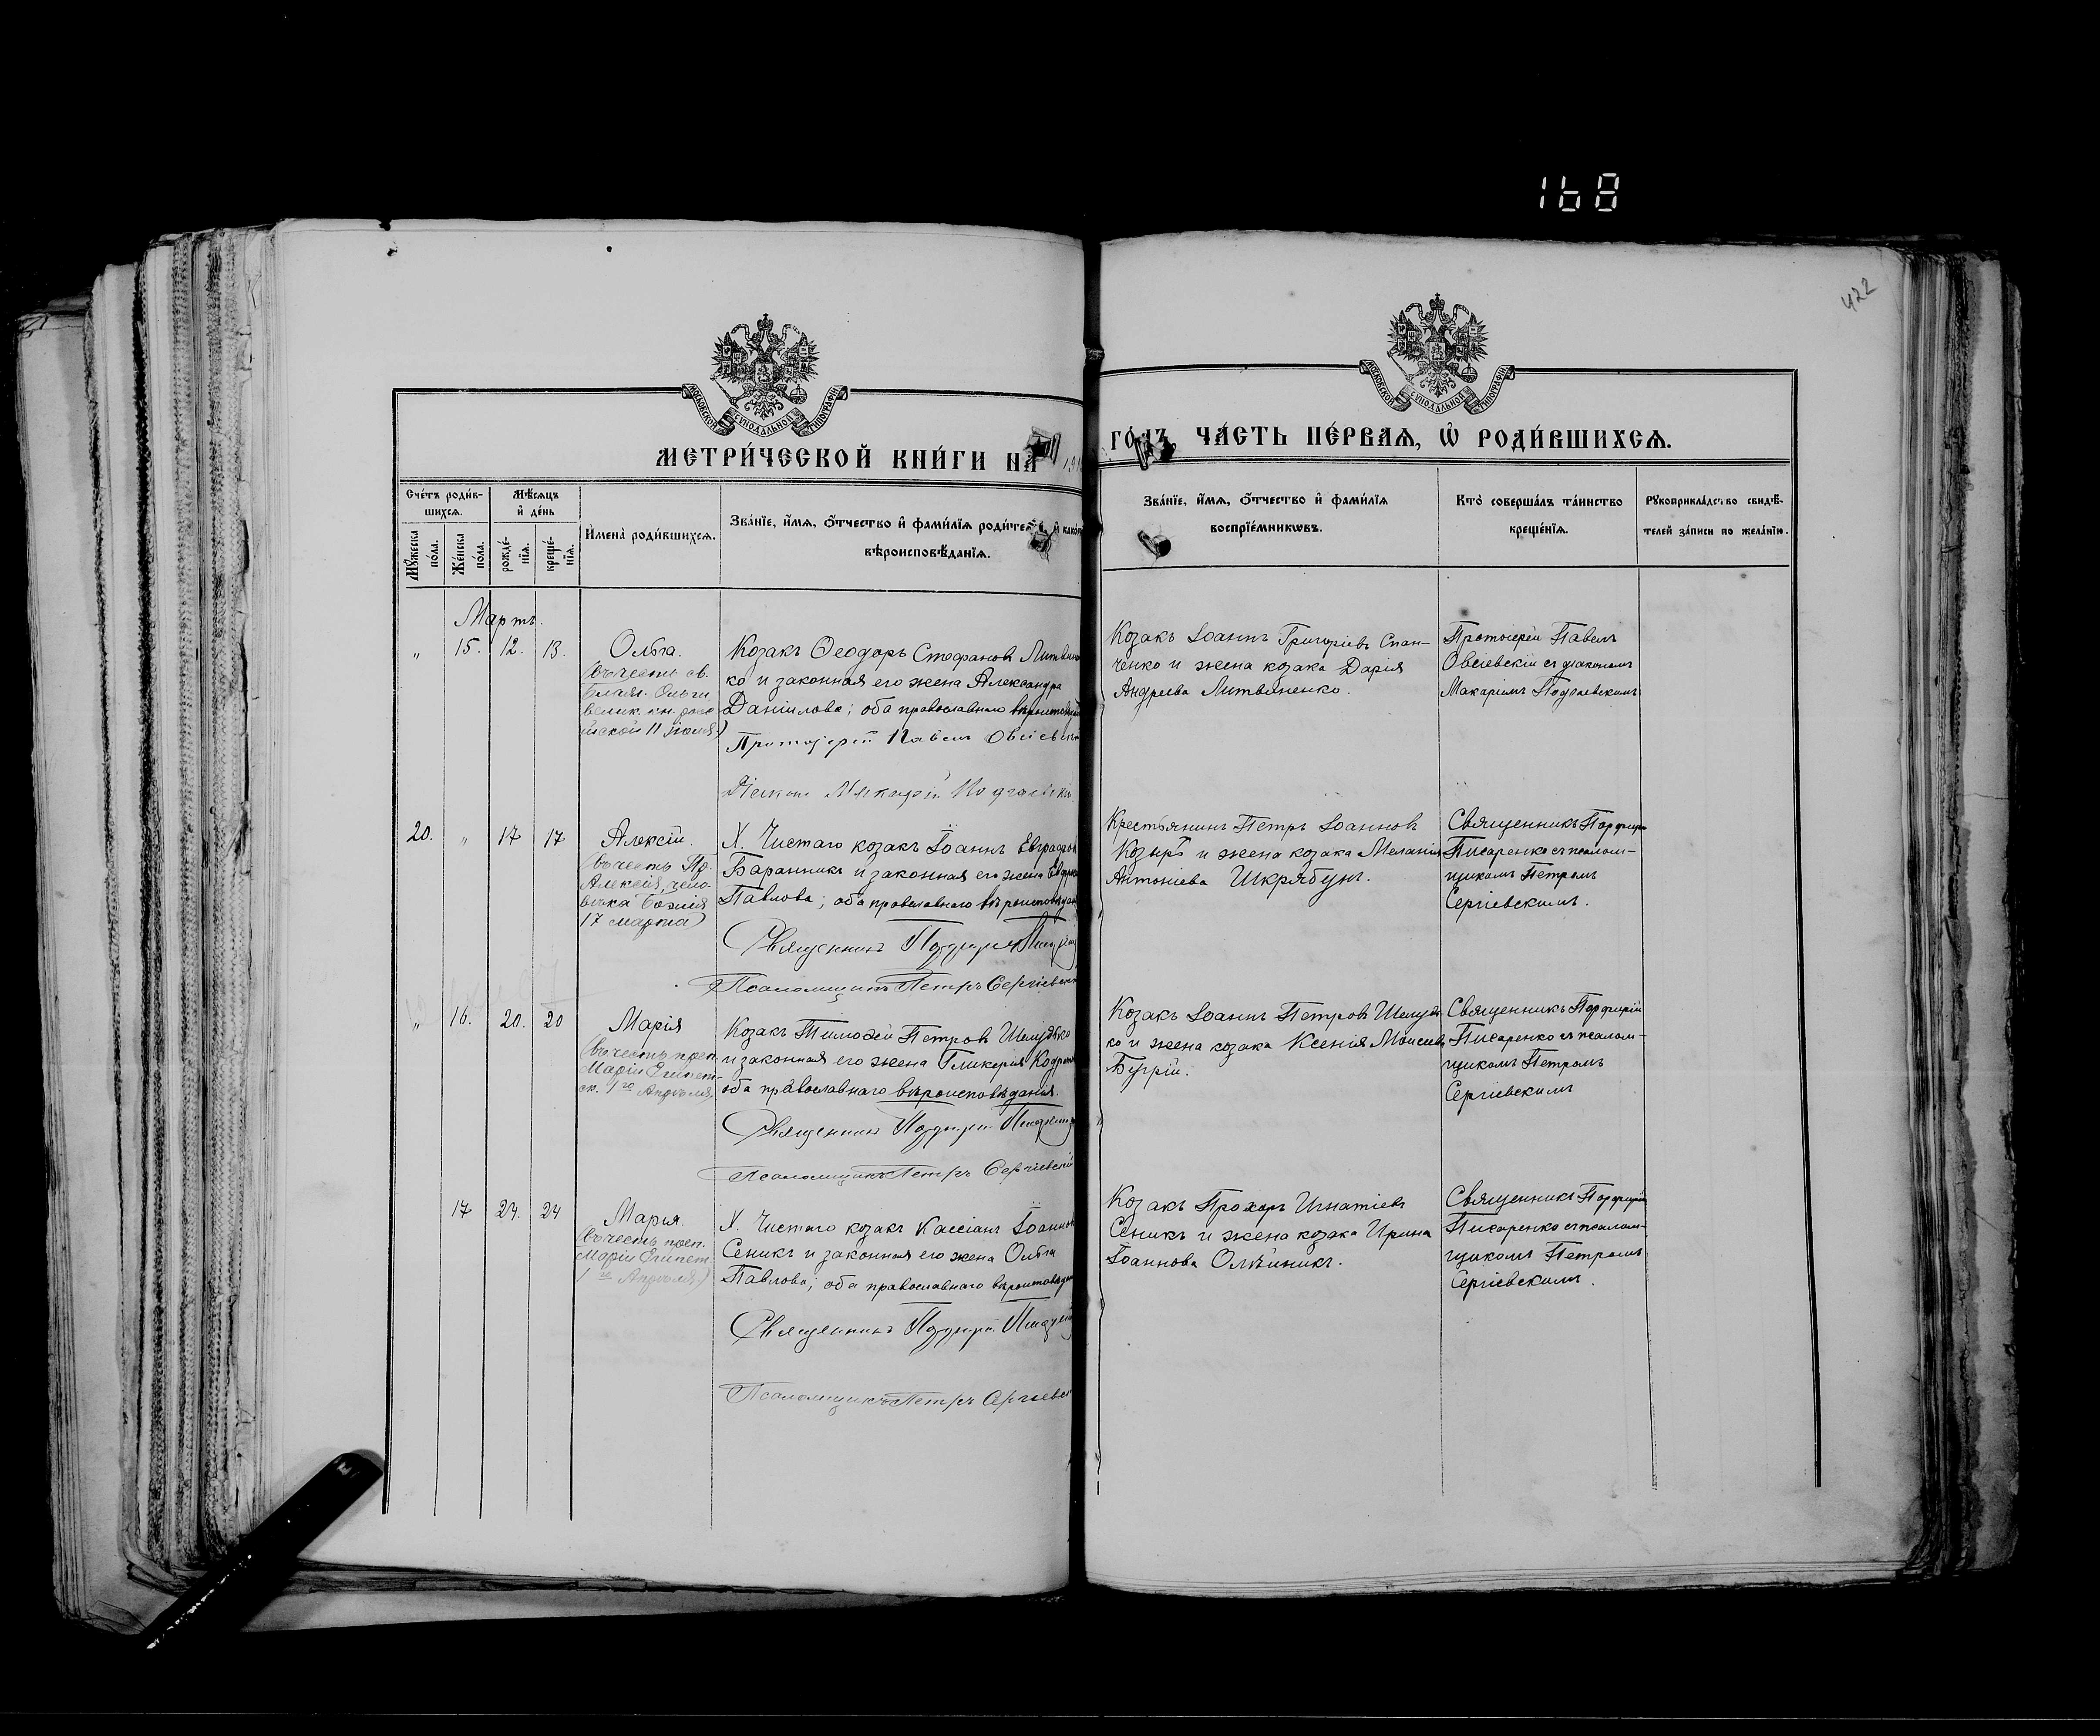 168
422
МОСКОВСКОЙ СѴНОДАЛЬНОЙ ТИПОГРАФІИ
МОСКОВСКОЙ СѴНОДАЛЬНОЙ ТИПОГРАФІИ
МЕТРИ́ЧЕСКОЙ КНИ́ГИ НА
ГО́ДЪ, ЧА́СТЬ ПЕ́РВАѦ, Ѡ҆ РОДИ́ВШИХСѦ.
Сче́тъ роди́в-
шихсѧ.
Мѣ́сѧцъ
и҆ де́нь
Мꙋ́жеска по́ла.
Же́нска по́ла.
рожде́-нїѧ.
креще́-нїѧ.
И҆мена̀ роди́вшихсѧ.
Зва́нїе, и҆́мѧ, ѻ҆́тчество и҆ фами́лїѧ роди́те и҆ како́
вѣроисповѣ́данїѧ.
Зва́нїе, и҆́мѧ, ѻ҆́тчество и҆ фами́лїѧ
воспрїе́мникѡвъ.
Кто̀ соверша́лъ та́инство
креще́нїѧ.
Рꙋкоприкла́дство свидѣ́-
телей за́писи по жела́нїю.
Мартъ.
„ 15. 12. 13.
Ольга.
(въ честь св.
Ольги
велик. кн. росс
ійской 11 іюля)
Козакъ Ѳеодоръ Стефановъ Литвинен
ко и законная его жена Александра
Даніилова; оба православнаго вѣроисповѣд
Протоіерей Павелъ Овсіевскій
Діаконъ Макарій
Козакъ Іоаннъ Григоріевъ Спан-
ченко и жена козака Дарія
Андреева Литвиненко.
Протоіерей Павелъ
Овсіевскій съ діакономъ
Макаріемъ
20. „ 17 17
Алексій.
(въ честь Пр.
Алексія, чело-
вѣка Божія
17 марта)
Х. Чистаго козакъ Іоаннъ Евграфов
Баранникъ и законная его жена Евдокія
Павлова; оба православнаго вѣроисповѣдан
Священникъ Порфирій Писаренко
Псаломщикъ Петръ Сергіевскій
Крестьянинъ Петръ Іоанновъ
Козырь и жена козака Меланія
Антоніева Шкрябунъ.
Священникъ Порфирій
Писаренко съ псалом-
щикомъ Петромъ
Сергіевскимъ.
„ 16. 20. 20
Марія
(въ честь преп.
Маріи Египет-
ск. 1го Апрѣля)
Козакъ Тимоѳей Петровъ Шелудько
и законная его жена Гликерія
оба православнаго вѣроисповѣданія.
Священникъ Порфирій Писаренко
Псаломщикъ Петръ Сергіевскій
Козакъ Іоаннъ Петровъ Шелудь
ко и жена козака Ксенія Моисеев
Бугрій.
Священникъ Порфирій
Писаренко съ псалом-
щикомъ Петромъ
Сергіевскимъ
17 24. 24
Марія.
(въ честь преп.
Маріи Египет.
1го Апрѣля)
Х. Чистаго козакъ Кассіанъ Іоаннов
Сеникъ и законная его жена Ольга
Павлова; оба православнаго вѣроисповѣдан
Священникъ Порфирій Писаренко
Псаломщикъ Петръ Сергіевск
Козакъ Прохоръ Игнатіевъ
Сеникъ и жена козака Ирина
Іоаннова Олѣйникъ.
Священникъ Порфирій
Писаренко съ псалом-
щикомъ Петромъ
Сергіевскимъ.